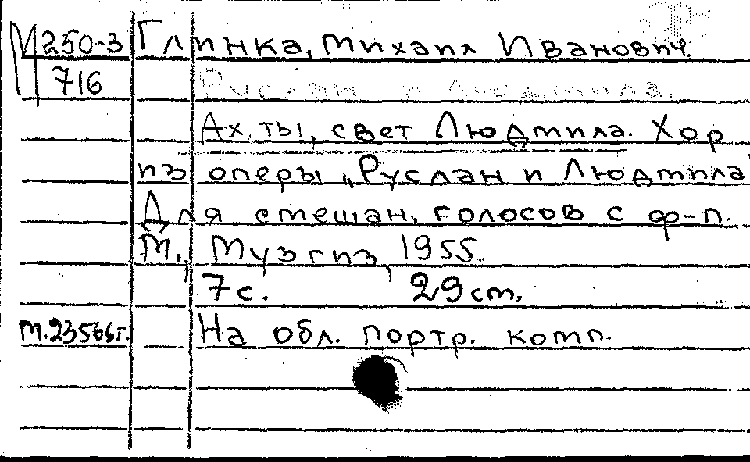 М250-3 Глинка, Михаил Иванович.
716 Руслан и Людмила.
Ах, ты, свет Людмила. Хор
из оперы „Руслан и Людмила
Для смешан. голосов с ф-п.
М., Музгиз, 1955.
7с. 29 cm.
На обл. портр. комп.